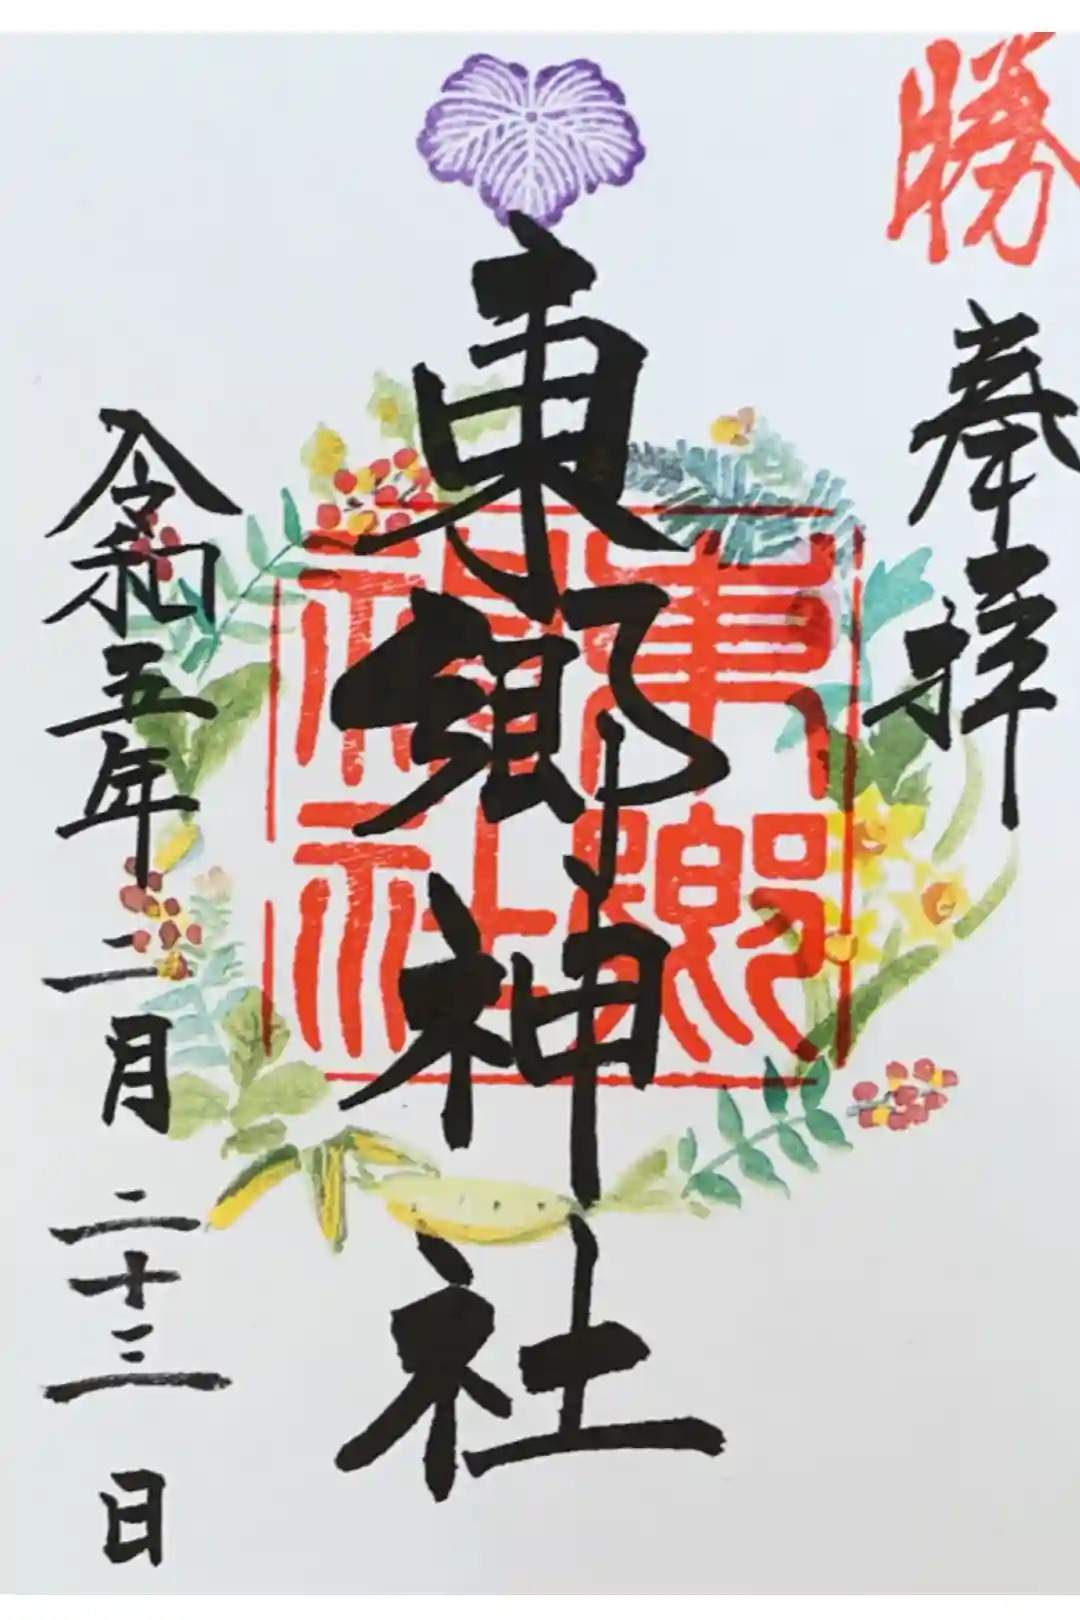 勝
奉拝
東郷神社
東郷
神社
令和五年二月二十三日